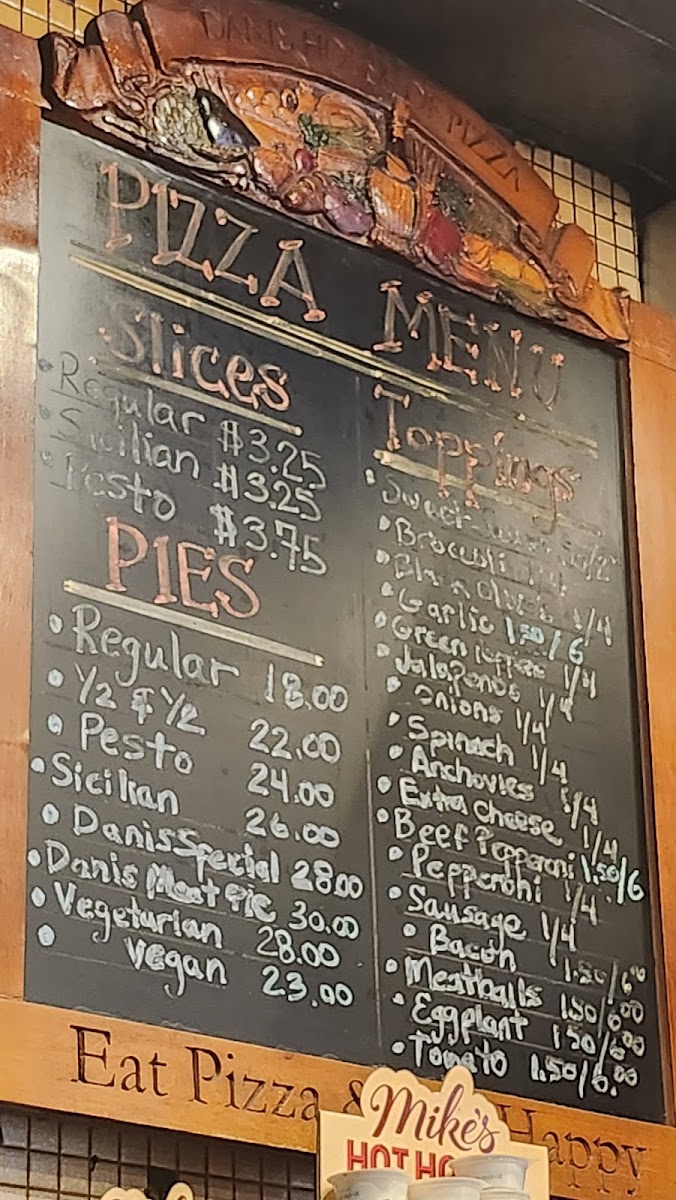 DANIS HOUSE OF PIZZA
PIZZA MENU
Slices
• Regular $3.25
• Sicilian $3.25
• Pesto $3.75
PIES
• Regular 18.00
• 1/2 & 1/2 22.00
• Pesto 24.00
• Sicilian 26.00
• Danis Special 28.00
• Danis Meat Pie 30.00
• Vegeturian 28.00
• Vegan 23.00
Toppings
• Sweet
• Broccoli
• Black Olives 1/4
• Garlic 1.50/6
• Green Peppers 1/4
• Jalapenos 1/4
• Onions 1/4
• Spinach 1/4
• Anchovies 1/4
• Extra Cheese 1/4
• Beef Pepperoni 1.50/6
• Pepperoni 1/4
• Sausage 1/4
• Bacon 1.50/6.00
• Meatballs 1.50/6.00
• Eggplant 1.50/6.00
• Tomato 1.50/6.00
Eat Pizza & Happy
Mike's
HOT HO